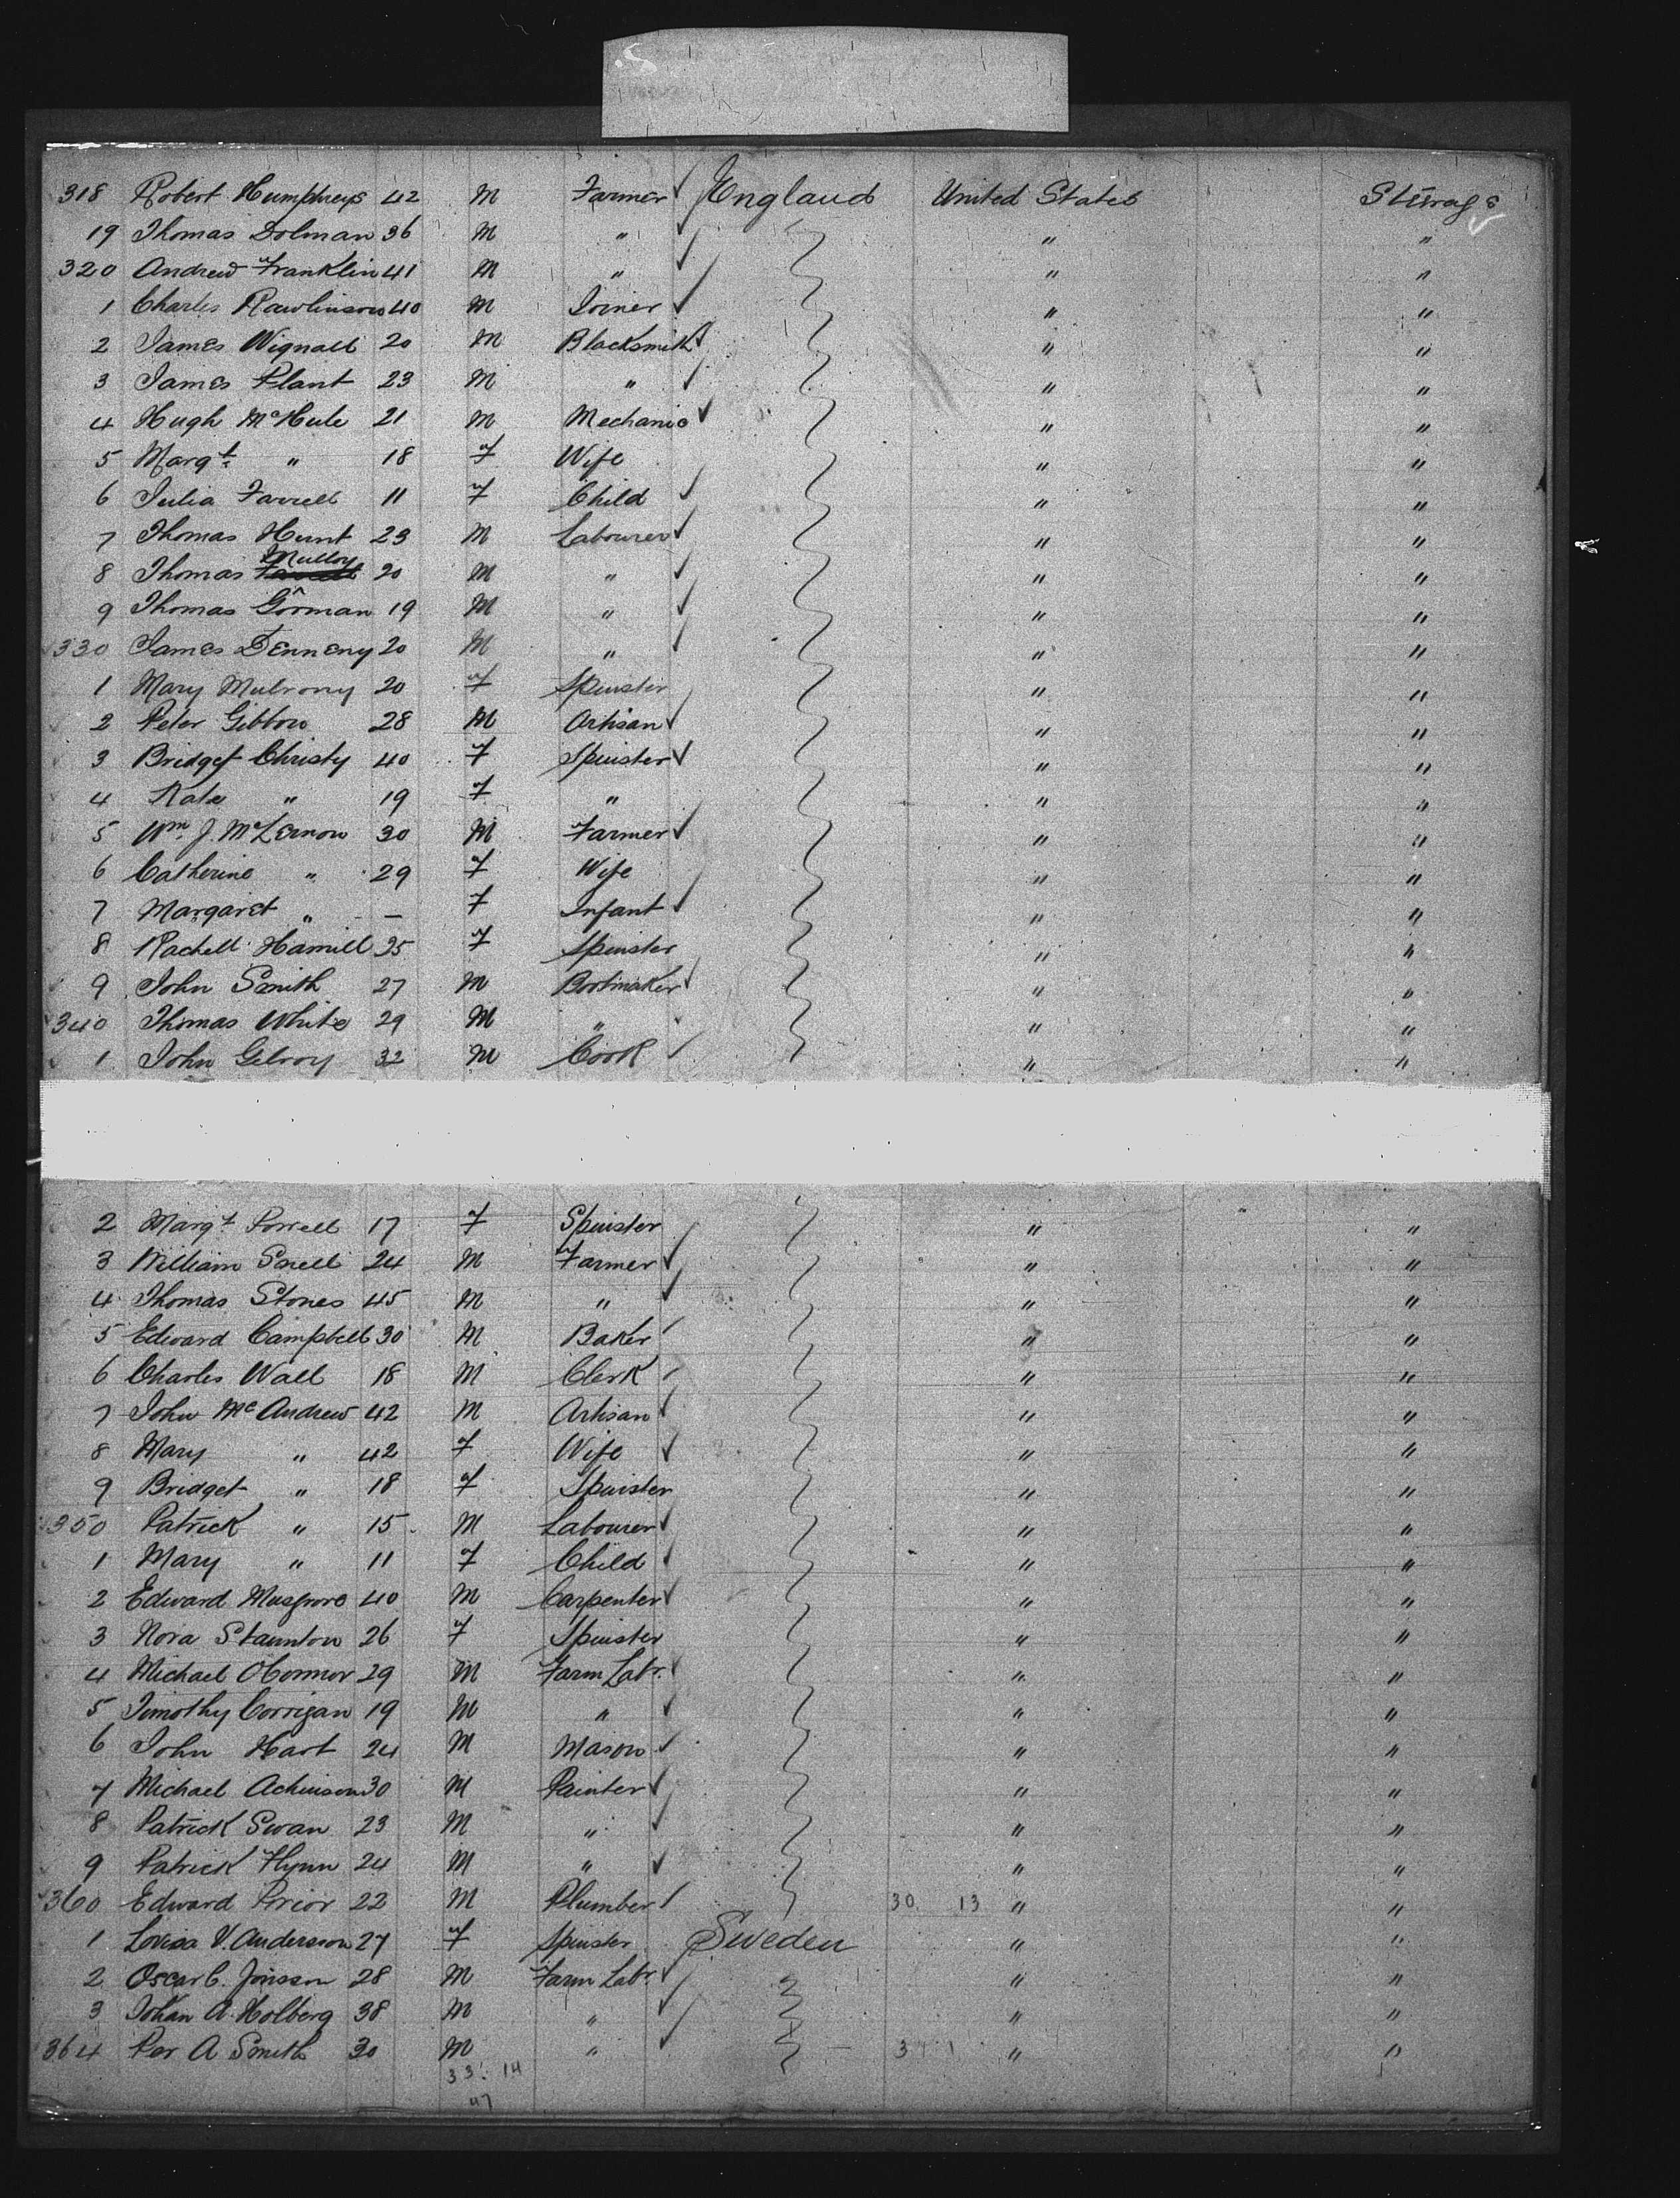 318 Robert Humphreys 42 M Farmer ✓ England United States Steerage
19 Thomas Dolman 36 M " ✓ " "
320 Andrew Franklin 41 M " ✓ " "
1 Charles Rawlinson 40 M Joiner ✓ " "
2 James Wignall 20 M Blacksmith ✓ " "
3 James Plant 23 M " ✓ " "
4 Hugh McHule 21 M Mechanic ✓ " "
5 Margt " 18 F Wife " "
6 Julia Farrell 11 F Child ✓ " "
7 Thomas Hunt 23 M Labourer ✓ " "
8 Thomas Mulloy 20 M " ✓ " "
9 Thomas Gorman 19 M " ✓ " "
330 James Denneny 20 M " ✓ " "
1 Mary Mulrony 20 F Spinster " "
2 Peter Gibbon 28 M Artisan ✓ " "
3 Bridget Christy 40 F Spinster ✓ " "
4 Kate " 19 F " " "
5 Wm J. McLernon 30 M Farmer ✓ " "
6 Catherine " 29 F Wife " "
7 Margaret " — F Infant ✓ " "
8 Rachell Hamill 25 F Spinster " "
9 John Smith 27 M Bootmaker ✓ " "
340 Thomas White 29 M " " "
1 John Gilroy 32 M Cook ✓ " "
2 Margt 17 F Spinster " "
3 William Snell 24 M Farmer ✓ " "
4 Thomas Stones 45 M " ✓ " "
5 Edward Campbell 30 M Baker ✓ " "
6 Charles Wall 18 M Clerk ✓ " "
7 John McAndrew 42 M Artisan ✓ " "
8 Mary " 42 F Wife ✓ " "
9 Bridget " 18 F Spinster " "
350 Patrick " 15 M Labourer ✓ " "
1 Mary " 11 F Child ✓ " "
2 Edward Musgrove 40 M Carpenter ✓ " "
3 Nora Staunton 26 F Spinster " "
4 Michael O'Connor 29 M Farm Labr. ✓ " "
5 Timothy Corrigan 19 M " ✓ " "
6 John Hart 24 M Mason ✓ " "
7 Michael Achinson 30 M Painter ✓ " "
8 Patrick Swan 23 M " ✓ " "
9 Patrick Flynn 24 M " ✓ " "
360 Edward Prior 22 M Plumber ✓ 30 13 " "
1 Lovisa V. Andersson 27 F Spinster Sweden " "
2 Oscar C. Jonsson 28 M Farm Labr. ✓ " "
3 Johan A. Holberg 38 M " ✓ " "
364 Per A Smith 30 M " ✓ 3 1 " "
33. 14
47